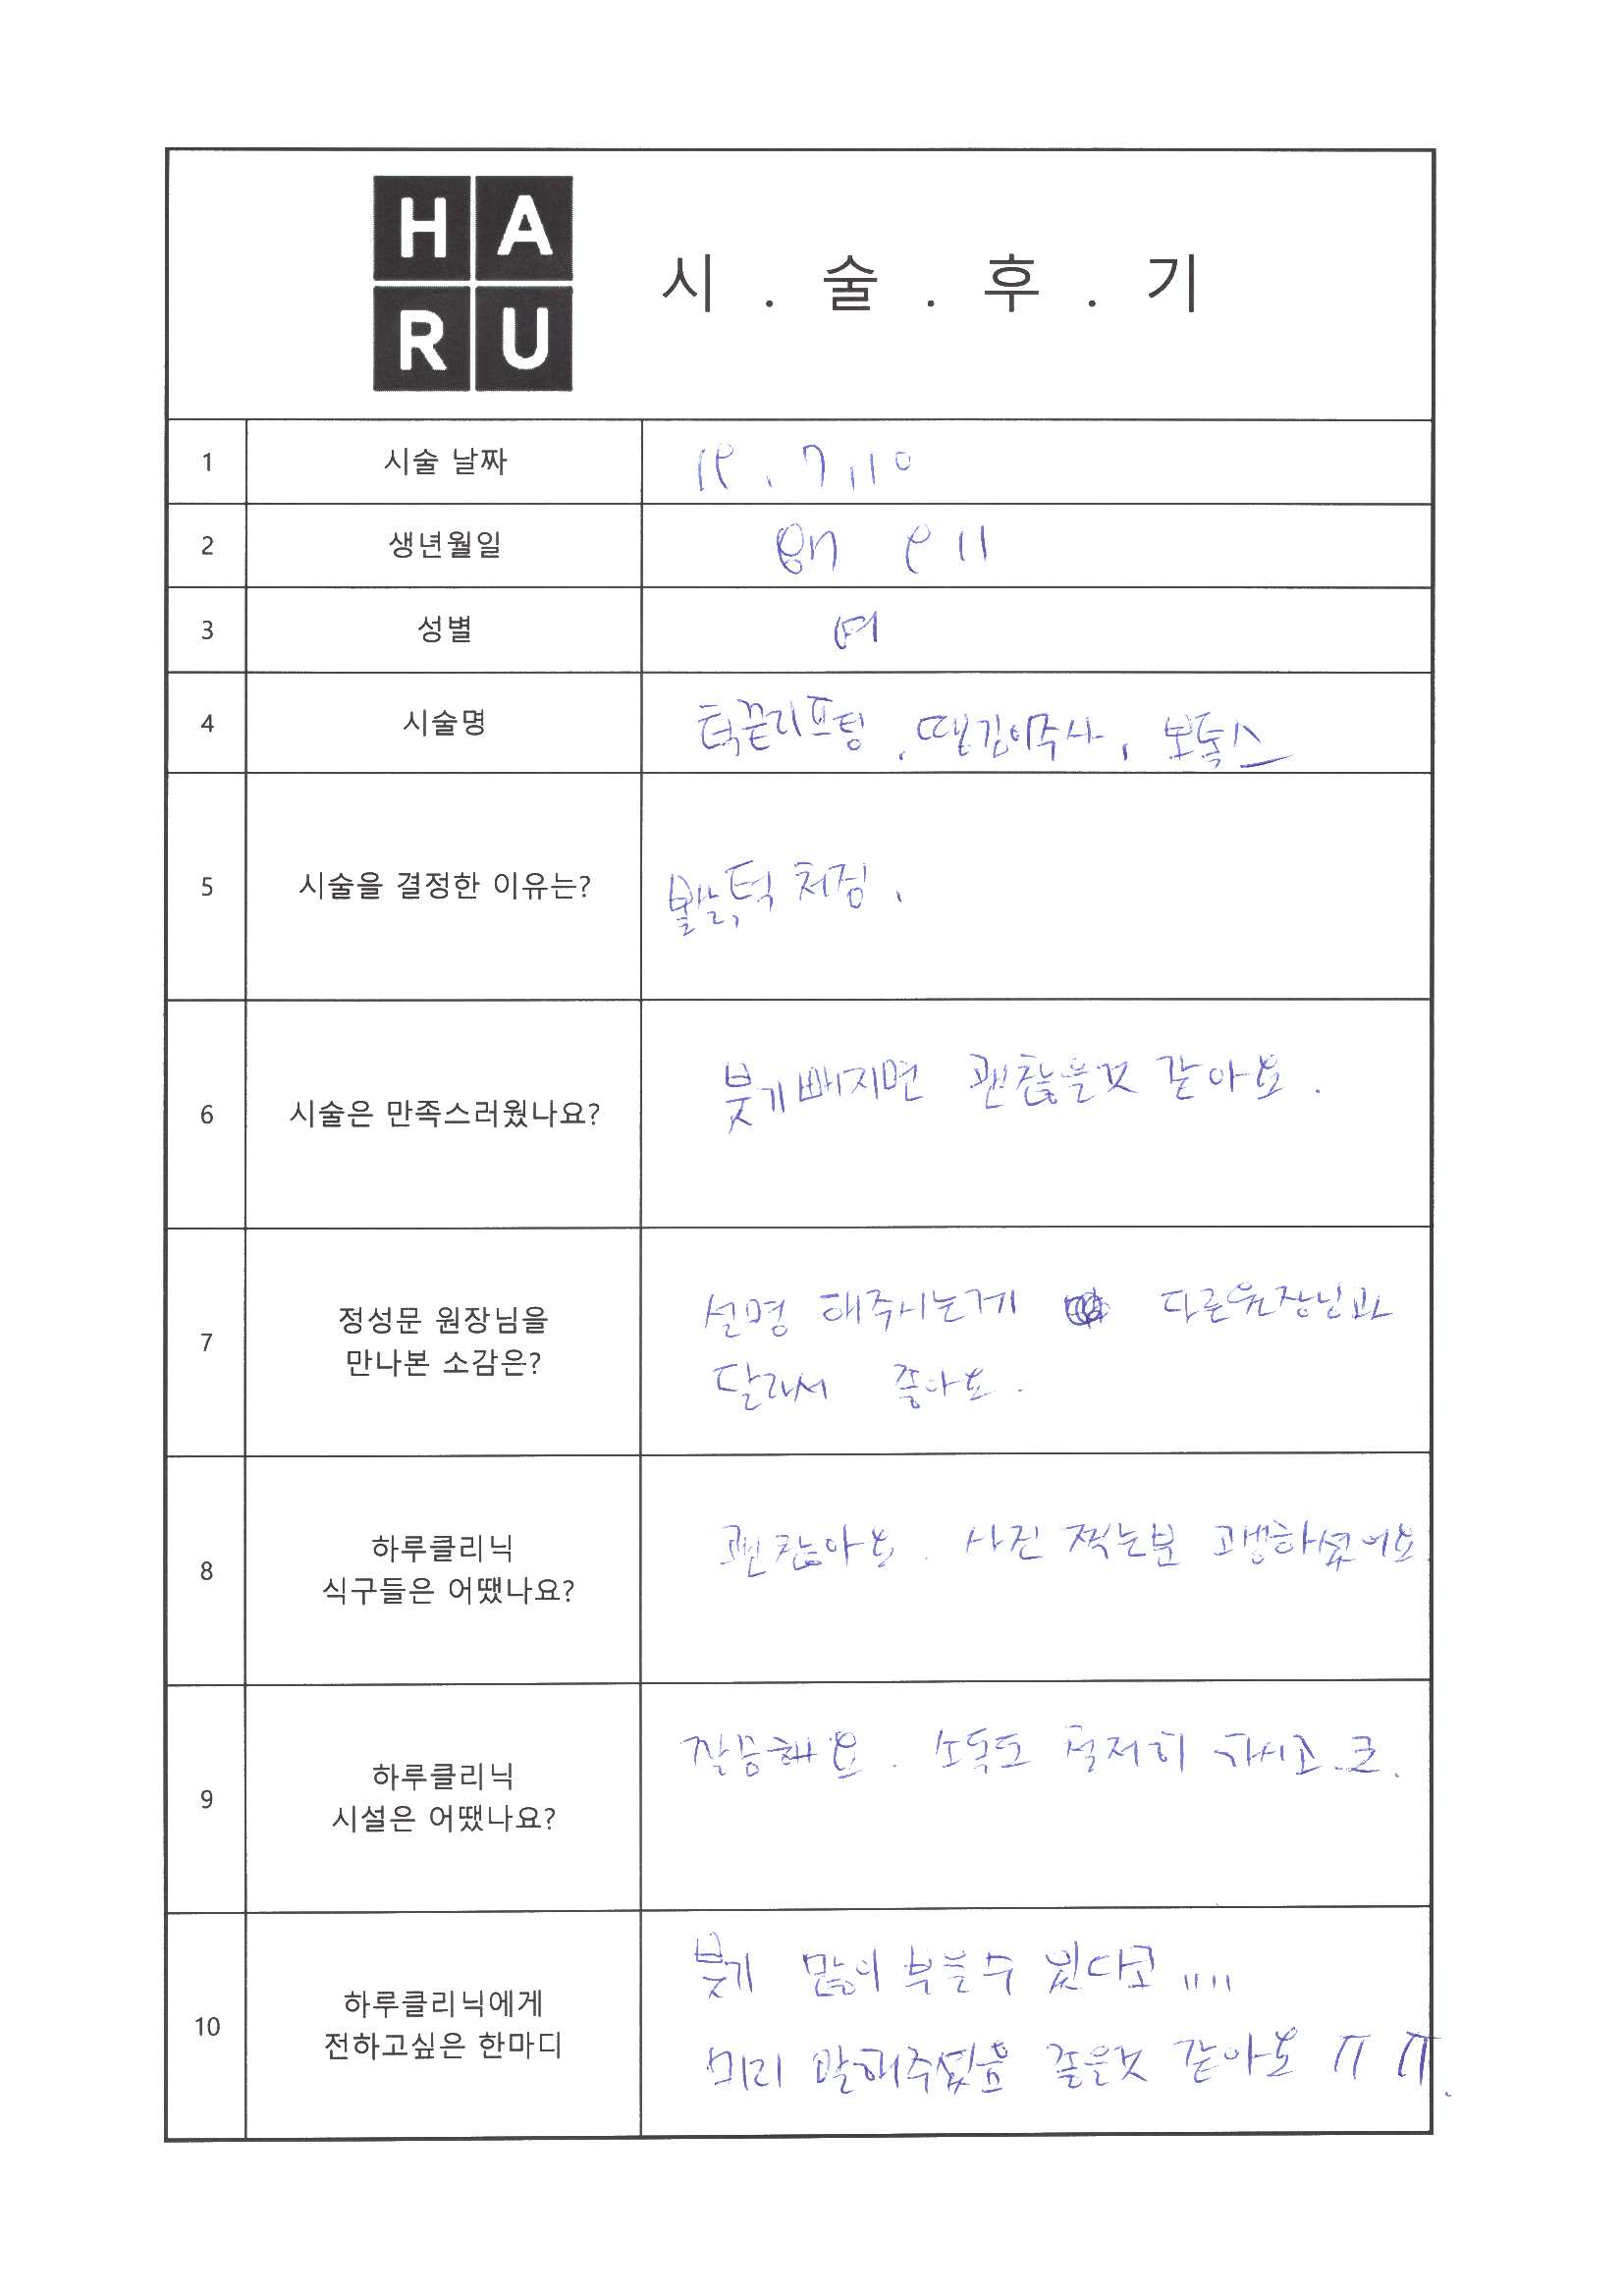 HARU
시.술.후.기
1 시술 날짜 19.7.10
2 생년월일 911
3 성별 여
4 시술명 턱끝리프팅, 땡김이주사, 보톡스
5 시술을 결정한 이유는? 턱 처짐.
6 시술은 만족스러웠나요? 붓기빠지면 괜찮을것 같아요.
7 정성문 원장님을
만나본 소감은?
설명 해주시는게 다른원장님과
달라서 좋아요.
8 하루클리닉
식구들은 어땠나요?
괜찮아요. 사진 찍는분 고생하셨어요.
9 하루클리닉
시설은 어땠나요?
깔끔해요. 소독도 철저히 하시고..
10 하루클리닉에게
전하고싶은 한마디
붓기 많이 부을수 있다고 ....
미리 말해주셨음 좋을것 같아요 ㅠㅠ.